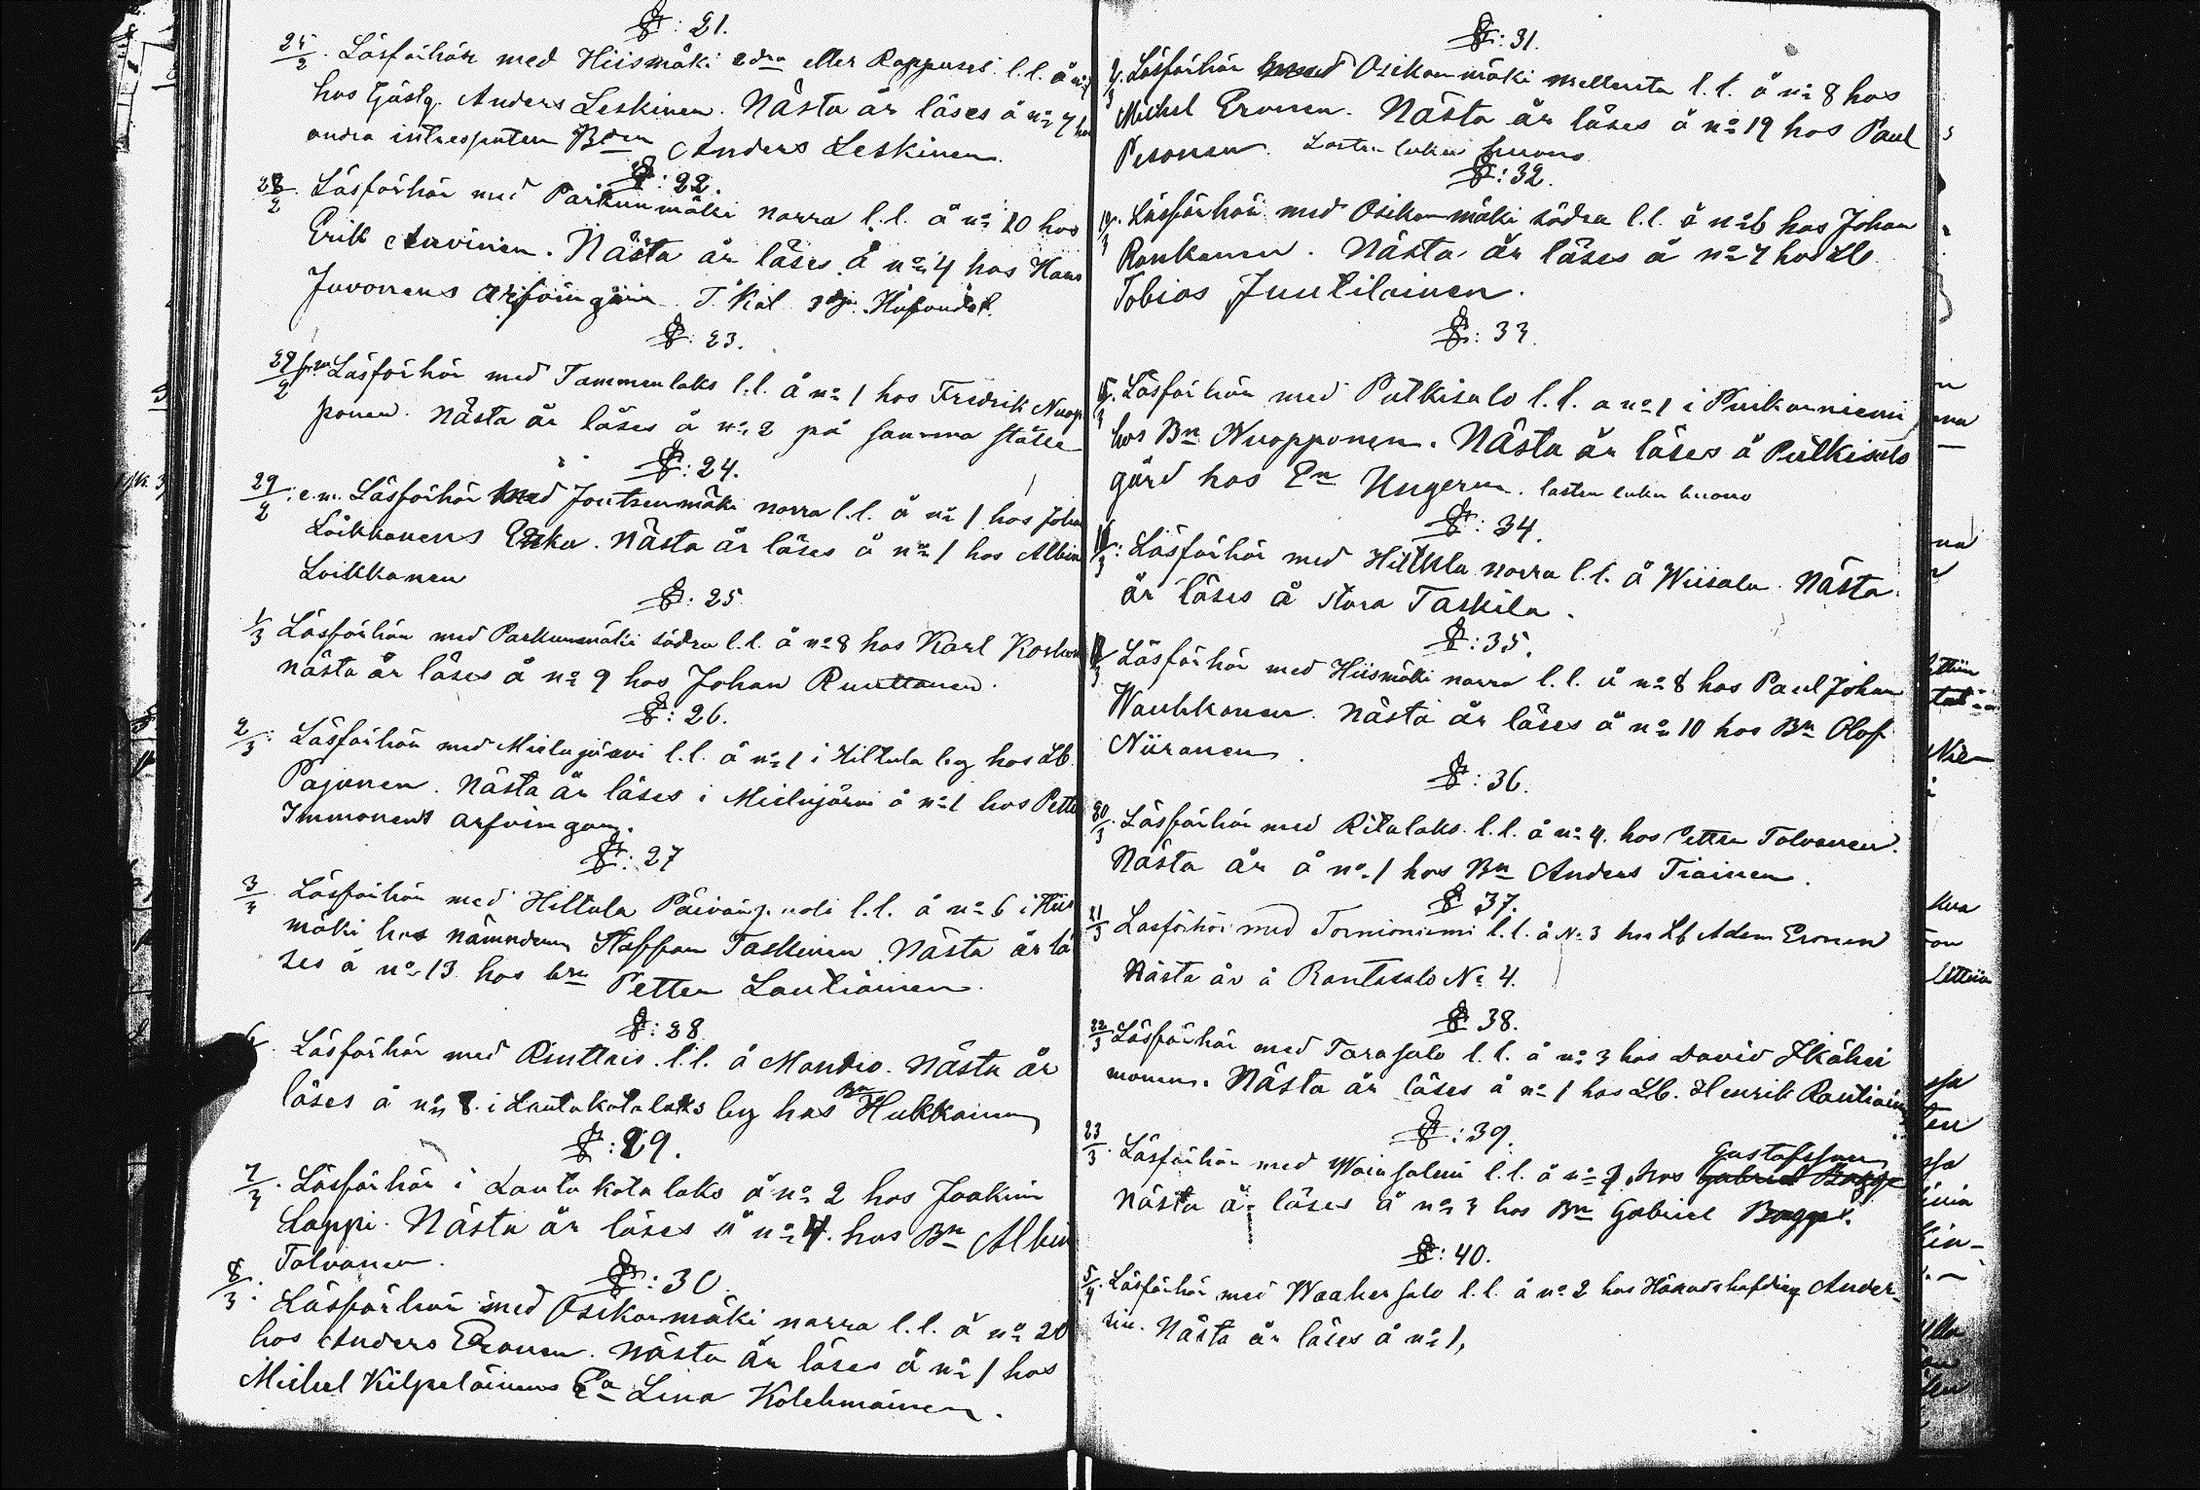 §: 21.
25/2. Läsförhör med Hiismäki 2dra eller Rappusel l.l. å
hos Gästg. Anders Leskinen. Nästa år läses å no 7
andra intressenten Bden Anders Leskinen.
§: 22.
28/2. Läsförhör med Parkunmäki norra l.l. å no 20 hos
Erik Auvinen. Nästa år läses å no 4 hos Hans
Juvonens arfvingar.
§: 23.
29/2 f.m. Läsförhör med Tammenlaks l.l. å no 1 hos Fredrik Nuop
ponen. Nästa år läses å no 2 på samma ställe
§: 24.
29/2: e.m. Läsförhör med Joutsenmäki norra l.l. å no 1 hos Joha
Loikkanens Enka. Nästa år läses å no 1 hos Albin
Loikkanen
§: 25
1/3 Läsförhör med Parkunmäki södra l.l. å no 8 hos Karl
nästa år läses å no 9 hos Johan Ruuttanen.
§: 26.
2/3: Läsförhör med Mielujärvi l.l. å no 1 i Hiltula by hos Lb
Pajunen. Nästa år läses i Mielujärvi å no 1 hos Pette
Immonens arfvingar.
§: 27
3/3. Läsförhör med Hiltula l.l. å no 6 i Hiis
mäki hos nämndem Staffan Taskinen. Nästa år lä
ses å no 13 hos bn Petter Lautiainen.
§: 28
Läsförhör med Ruuttais. l.l. å Mandro. Nästa år
läses å no 8. i Lautakotalaks by hos Bn Hukkainen
§: 29.
7/3. Läsförhör i Lautakotalaks å no 2 hos Joakim
Lappi. Nästa år läses å no 4. hos Bn Albin
Tolvanen.
§: 30.
8/3: Läsförhör med Osikonmäki norra l.l. å no 20
hos Anders Eronen. Nästa år läses å no 1 hos
Michel Kilpeläinens Ea Lena Kolehmainen.
§: 31.
9/3. Läsförhör med Osikonmäki mellersta l.l. å no 8 hos
Michel Eronen. Nästa år läses å no 19 hos Paul
Pesonen. Lasten luku huono
§: 32.
Läsförhör med Osikonmäki södra l.l. å no 6 hos Johan
Ronkanen. Nästa år läses å no 7 hos Lb
Tobias Juutilainen.
§: 33.
Läsförhör med Putkisalo l.l. å no 1 i Puikonniemi
hos Bn Nuopponen. Nästa år läses å Putkisalo
gård hos En Ungern. lasten luku huono
§: 34.
Läsförhör med Hiltula norra l.l. å Wiisala. Nästa
år läses å stora Taskila.
§: 35.
Läsförhör med Hiismäki norra l.l. å no 8 hos Paul Johan
Wauhkonen. Nästa år läses å no 10 hos Bn Olof
Niiranen.
§: 36.
20/3. Läsförhör med Ritalaks. l.l. å no 4. hos Petter Tolvanen.
Nästa år å no 1 hos Bn Anders Tiainen.
§ 37.
21/3 Läsförhör med Tornioniemi l.l. å No 3 hos Lb Adam Eronen
Nästa år å Rantasalo No 4.
§ 38.
22/3 Läsförhör med Torasalo l.l. å no 3 hos David Ikähei
monen. Nästa år läses å no 1 hos Lb. Henrik Rautiain
§: 39.
Gustafsson
23/3. Läsförhör med Wainsalmi l.l. å no hos Gabriel Bagge
Nästa år läses å no 3 hos Bn Gabriel Bagge.
§: 40.
5/4. Läsförhör med Waahersalo l.l. å no 2 hos Häradshöfding Ander-
sin. Nästa år läses å no 1.